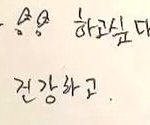 하고싶다
건강하고.